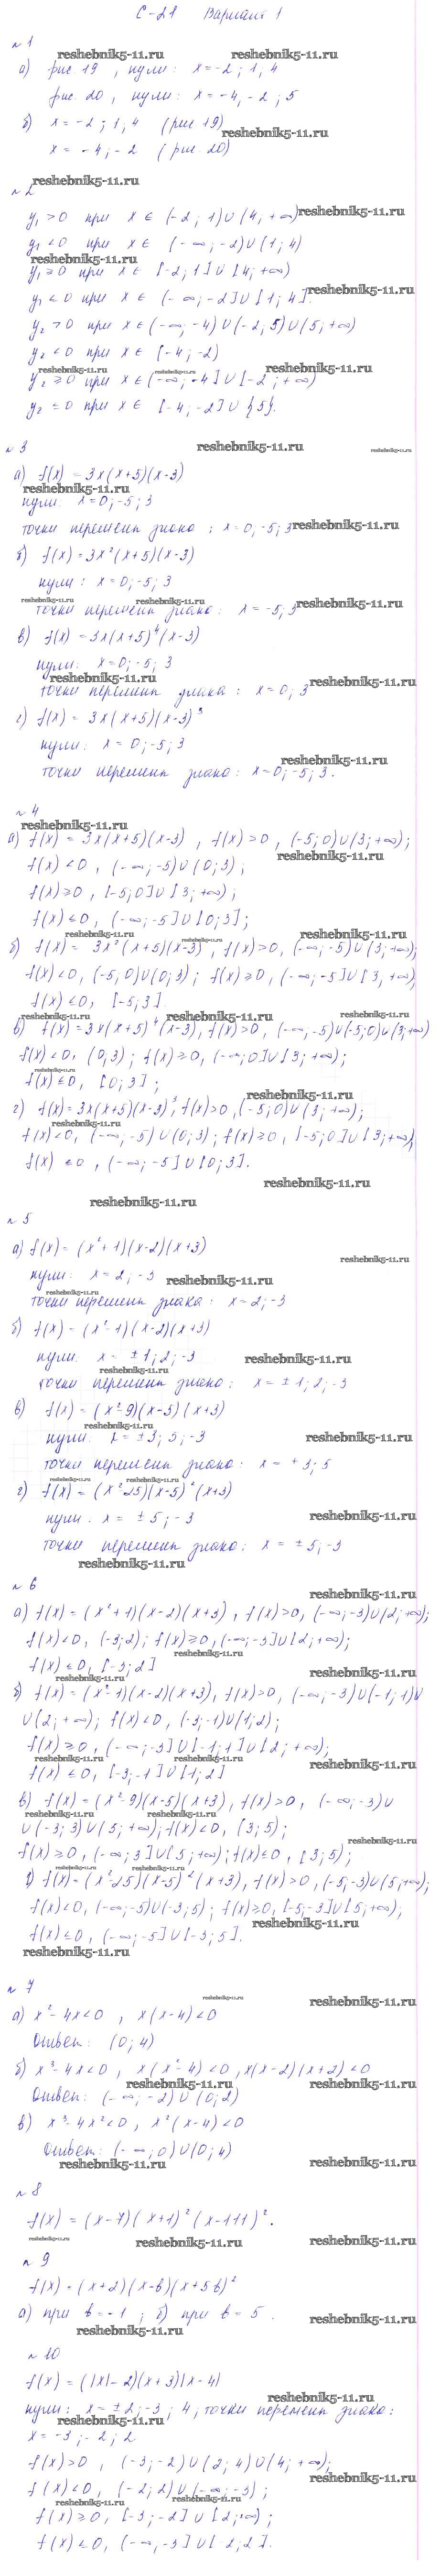 С-21 Вариант 1
№1
а) рис. 19, нули: x=-2; 1; 4
рис. 20, нули: x=-4; -2; 5
б) x=-2; 1; 4 (рис 19)
x=-4; -2 (рис 20)
№2
y₁>0 при x∈(-2; 1)∪(4; +∞)
y₁<0 при x∈(-∞; -2)∪(1; 4)
y₁≥0 при x∈[-2; 1]∪[4; +∞)
y₁≤0 при x∈(-∞; -2]∪[1; 4].
y₂>0 при x∈(-∞; -4)∪(-2; 5)∪(5; +∞)
y₂<0 при x∈(-4; -2)
y₂≥0 при x∈(-∞; -4]∪[-2; +∞)
y₂≤0 при x∈[-4; -2]∪{5}.
№3
а) f(x)=3x(x+5)(x-3)
нули: x=0; -5; 3
точки перемены знака: x=0; -5; 3
б) f(x)=3x²(x+5)(x-3)
нули: x=0; -5; 3
точки перемены знака: x=-5; 3
в) f(x)=3x(x+5)⁴(x-3)
нули: x=0; -5; 3
точки перемены знака: x=0; 3
г) f(x)=3x(x+5)(x-3)³
нули: x=0; -5; 3
точки перемены знака: x=0; -5; 3.
№4
а) f(x)=3x(x+5)(x-3), f(x)>0, (-5; 0)∪(3; +∞);
f(x)<0, (-∞; -5)∪(0; 3);
f(x)≥0, [-5; 0]∪[3; +∞);
f(x)≤0, (-∞; -5]∪[0; 3];
б) f(x)=3x²(x+5)(x-3), f(x)>0, (-∞; -5)∪(3; +∞);
f(x)<0, (-5; 0)∪(0; 3); f(x)≥0, (-∞; -5]∪[3, +∞),
f(x)≤0, [-5; 3].
в) f(x)=3x(x+5)⁴(x-3), f(x)>0, (-∞; -5)∪(-5; 0)∪(3; +∞)
f(x)<0, (0; 3); f(x)≥0, (-∞; 0]∪[3; +∞);
f(x)≤0, [0; 3];
г) f(x)=3x(x+5)(x-3)³, f(x)>0, (-5; 0)∪(3; +∞);
f(x)<0, (-∞; -5)∪(0; 3); f(x)≥0, [-5; 0]∪[3; +∞),
f(x)≤0, (-∞; -5]∪[0; 3].
№5
а) f(x)=(x²+1)(x-2)(x+3)
нули: x=2; -3
точки перемены знака: x=2; -3
б) f(x)=(x²-1)(x-2)(x+3)
нули: x=±1; 2; -3
точки перемены знака: x=±1; 2; -3
в) f(x)=(x²-9)(x-5)(x+3)
нули: x=±3; 5; -3
точки перемены знака: x=+3; 5
г) f(x)=(x²-25)(x-5)²(x+3)
нули: x=±5; -3
точки перемены знака: x=±5; -3
№6
а) f(x)=(x²+1)(x-2)(x+3), f(x)>0, (-∞; -3)∪(2; +∞);
f(x)<0, (-3; 2); f(x)≥0, (-∞; -3]∪[2; +∞);
f(x)≤0, [-3; 2]
б) f(x)=(x²-1)(x-2)(x+3), f(x)>0, (-∞; -3)∪(-1; 1)∪
∪(2; +∞); f(x)<0, (-3; -1)∪(1; 2);
f(x)≥0, (-∞; -3]∪[-1; 1]∪[2; +∞);
f(x)≤0, [-3; -1]∪[1; 2]
в) f(x)=(x²-9)(x-5)(x+3), f(x)>0, (-∞; -3)∪
∪(-3; 3)∪(5; +∞); f(x)<0, (3; 5);
f(x)≥0, (-∞; 3]∪[5; +∞); f(x)≤0, [3; 5];
г) f(x)=(x²-25)(x-5)²(x+3), f(x)>0, (-5; -3)∪(5; +∞);
f(x)<0, (-∞; -5)∪(-3; 5); f(x)≥0, [-5; -3]∪[5; +∞);
f(x)≤0, (-∞; -5]∪[-3; 5].
№7
а) x²-4x<0, x(x-4)<0
Ответ: (0; 4)
б) x³-4x<0, x(x²-4)<0, x(x-2)(x+2)<0
Ответ: (-∞; -2)∪(0; 2)
в) x³-4x²<0, x²(x-4)<0
Ответ: (-∞; 0)∪(0; 4)
№8
f(x)=(x-7)(x+1)²(x-111)².
№9
f(x)=(x+2)(x-b)(x+5b)²
а) при b=-1; б) при b=5.
№10
f(x)=(|x|-2)(x+3)|x-4|
нули: x=±2; -3; 4; точки перемены знака:
x=-3; -2; 2
f(x)>0, (-3; -2)∪(2; 4)∪(4; +∞);
f(x)<0, (-2; 2)∪(-∞; -3);
f(x)≥0, [-3; -2]∪[2; +∞);
f(x)≤0, (-∞; -3]∪[-2; 2].